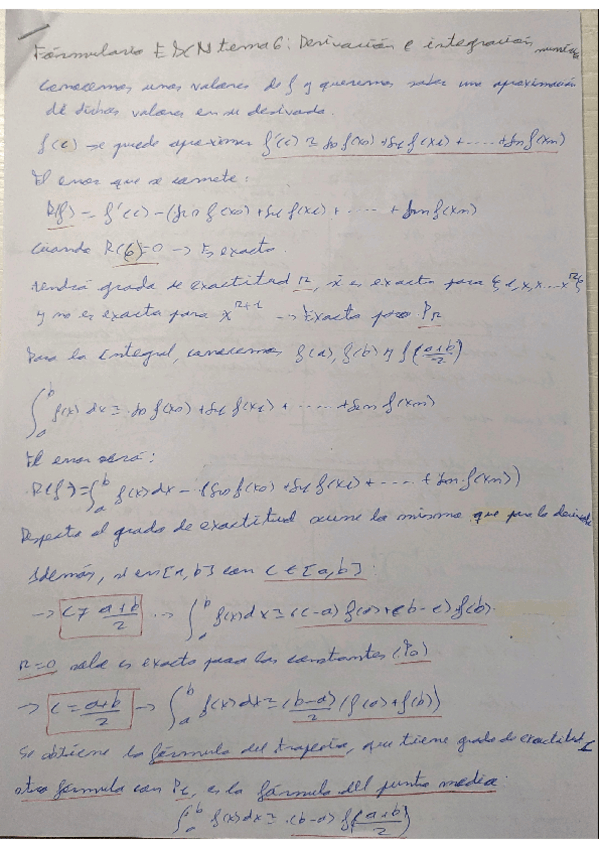 Fórmulario EDCN tema 6: Derivación e integración numérica
Conocemos unos valores de f y queremos saber una aproximación
de dichos valores en su derivada.
f(c) → se puede aproximar f'(c) ≃ δ0 f(x0) + δ1 f(x1) + ..... + δn f(xn)
El error que se comete:
R(f) = f'(c) - (δ0 f(x0) + δ1 f(x1) + ..... + δn f(xn)
Cuando R(f)=0 → Es exacta.
Tendrá grado de exactitud r, si es exacta para {1, x, x... x^r}
y no es exacta para x^{r+1} → Exacta para P_r
Para la integral, conocemos f(a), f(b) y f(a+b/2)
∫_a^b f(x) dx ≃ δ0 f(x0) + δ1 f(x1) + ..... + δn f(xn)
El error será:
R(f) = ∫_a^b f(x) dx - (δ0 f(x0) + δ1 f(x1) + ..... + δn f(xn))
Respecto al grado de exactitud ocurre lo mismo que para la derivada
Además, si en [a,b] con c ∈ [a,b]:
→ c ≠ a+b/2 → ∫_a^b f(x) dx ≃ (c-a) f(a) + (b-c) f(b)
r=0 solo es exacta para las constantes (P0)
→ c = a+b/2 → ∫_a^b f(x) dx ≃ (b-a)/2 (f(a) + f(b))
Se obtiene la fórmula del trapecio, que tiene grado de exactitud 1
otra fórmula con P1, es la fórmula del punto medio:
∫_a^b f(x) dx ≃ (b-a) f(a+b/2)